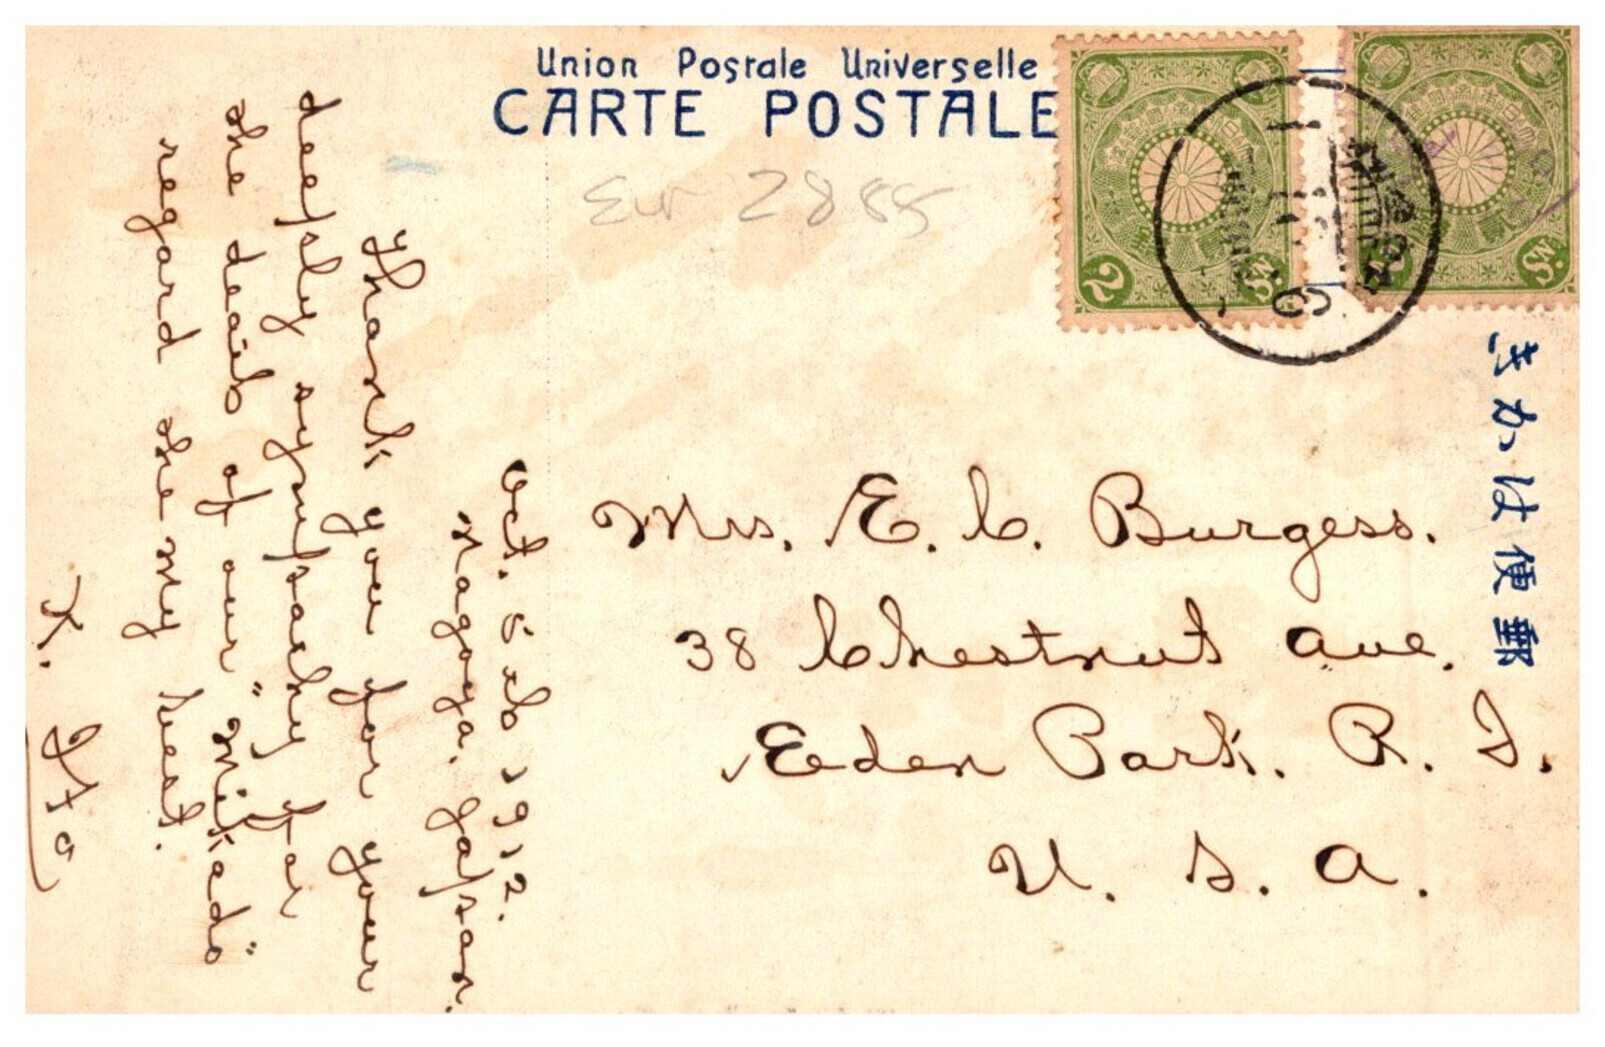 Union Postale Universelle
CARTE POSTALE
Eur 2885
2 Sn.
2 Sn.
郵便はかき
Oct. 5th, 1912.
Nagoya. Japan.
Thank you for your
deeply sympathy for
the death of our "Mikado"
regard the my best.
K. Ito
Mrs. E. C. Burgess.
38 Chestnut Ave.
Eden Park. R. I.
U. S. A.